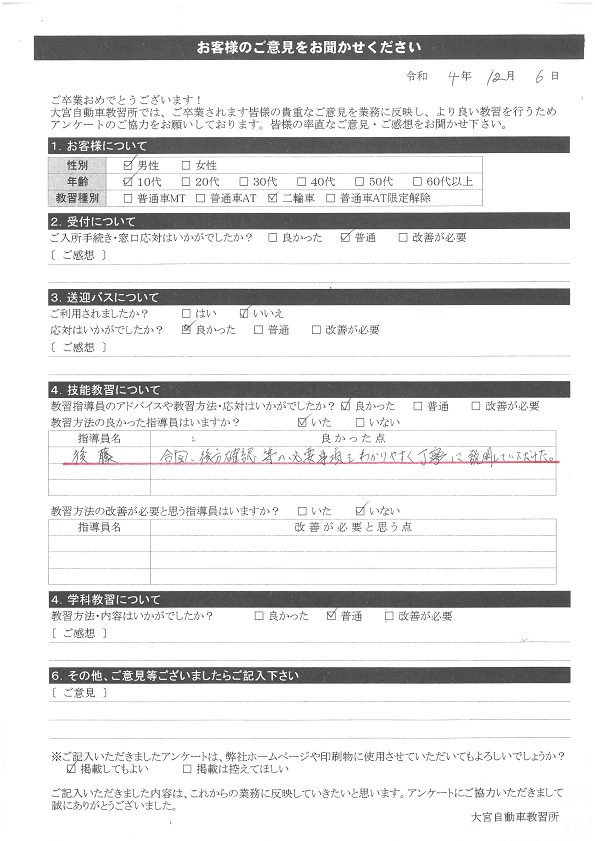 お客様のご意見をお聞かせください
令和 4年 12月 6日
ご卒業おめでとうございます！
大宮自動車教習所では、ご卒業されます皆様の貴重なご意見を業務に反映し、より良い教習を行うため
アンケートのご協力をお願いしております。皆様の率直なご意見・ご感想をお聞かせ下さい。
1. お客様について
性別 ☑男性 □女性
年齢 ☑10代 □20代 □30代 □40代 □50代 □60代以上
教習種別 □普通車MT □普通車AT ☑二輪車 □普通車AT限定解除
2. 受付について
ご入所手続き・窓口応対はいかがでしたか？ □良かった ☑普通 □改善が必要
［ ご感想 ］
3. 送迎バスについて
ご利用されましたか？ □はい ☑いいえ
応対はいかがでしたか？ ☑良かった □普通 □改善が必要
［ ご感想 ］
4. 技能教習について
教習指導員のアドバイスや教習方法・応対はいかがでしたか？ ☑良かった □普通 □改善が必要
教習方法の良かった指導員はいますか？ ☑いた □いない
指導員名 良かった点
後藤 合図、後方確認等の必要事項をわかりやすく丁寧に説明していただけた。
教習方法の改善が必要と思う指導員はいますか？ □いた ☑いない
指導員名 改善が必要と思う点
4. 学科教習について
教習方法・内容はいかがでしたか？ □良かった ☑普通 □改善が必要
［ ご感想 ］
6. その他、ご意見等ございましたらご記入下さい
［ ご意見 ］
※ご記入いただきましたアンケートは、弊社ホームページや印刷物に使用させていただいてもよろしいでしょうか？
☑掲載してもよい □掲載は控えてほしい
ご記入いただきました内容は、これからの業務に反映していきたいと思います。アンケートにご協力いただきまして
誠にありがとうございました。
大宮自動車教習所